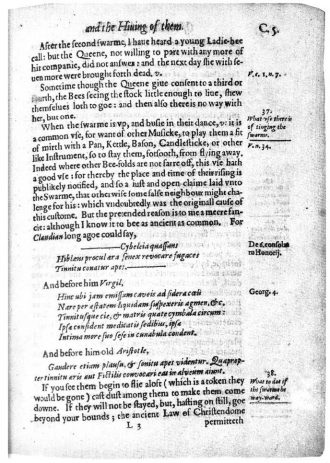 and the Hiuing of them.
C. 5.
After the second swarme, I haue heard a young Ladie-bee
call: but the Queene, not willing to part with any more of
his companie, did not answer: and the next day she with se-
uen more were brought forth dead. v.
V. c. 1. n. 7.
Sometime though the Queene giue consent to a third or
fourth, the Bees seeing the stock little enough to liue, shew
themselues loth to goe: and then also there is no way with
her, but one.
When the swarme is vp, and busie in their dance, v: it is
a common vse, for want of other Musicke, to play them a fit
of mirth with a Pan, Kettle, Bason, Candlesticke, or other
like Instrument, so to stay them, forsooth, from flying away.
Indeed where other Bee-folds are not farre off, this vse hath
a good vse: for thereby the place and time of their rising is
publikely notified, and so a iust and open claime laid vnto
the Swarme, that otherwise some false neighbour might cha-
lenge for his: which vndoubtedly was the originall cause of
this custome. But the pretended reason is to mee a meere fan-
cie: although I know it to bee as ancient as common. For
Claudian long agoe could say,
37.
What vse there is
of tinging the
swarme.
V. n. 34.
Cybeleia quassans
Hiblæus procul æra senex revocare fugaces
Tinnitu conatur apes:
De 6. consulatu
Honorij.
And before him Virgil,
Georg. 4.
Hinc ubi jam emissum caveis ad sidera cœli
Nare per æstatem liquidam suspexeris agmen, &c.
Tinnitusque cie, & matris quate cymbala circum:
Ipsa consident medicatis sedibus, ipsa
Intima more suo sese in cunabula condent.
And before him old Aristotle,
Gaudere etiam plausu, & sonitu apes videntur. Quaprop-
ter tinnitu æris aut fictilis convocari eas in alveum aiunt.
If you see them begin to flie aloft (which is a token they
would be gone) cast dust among them to make them come
downe. If they will not be stayed, but, hasting on still, goe
beyond your bounds; the ancient Law of Christendome
38.
What to do if
the swarme be
way-ward.
L 3
permitteth